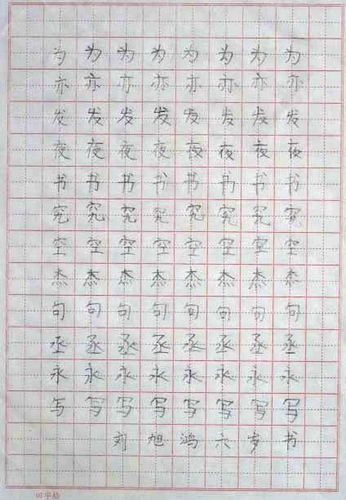 为为为为为为为为
亦亦亦亦亦亦亦亦
发发发发发发发发
夜夜夜夜夜夜夜夜
书书书书书书书书
究究究究究究究究
空空空空空空空空
杰杰杰杰杰杰杰杰
句句句句句句句句
丞丞丞丞丞丞丞丞
永永永永永永永永
写写写写写写写写
刘旭鸿六岁书
田字格